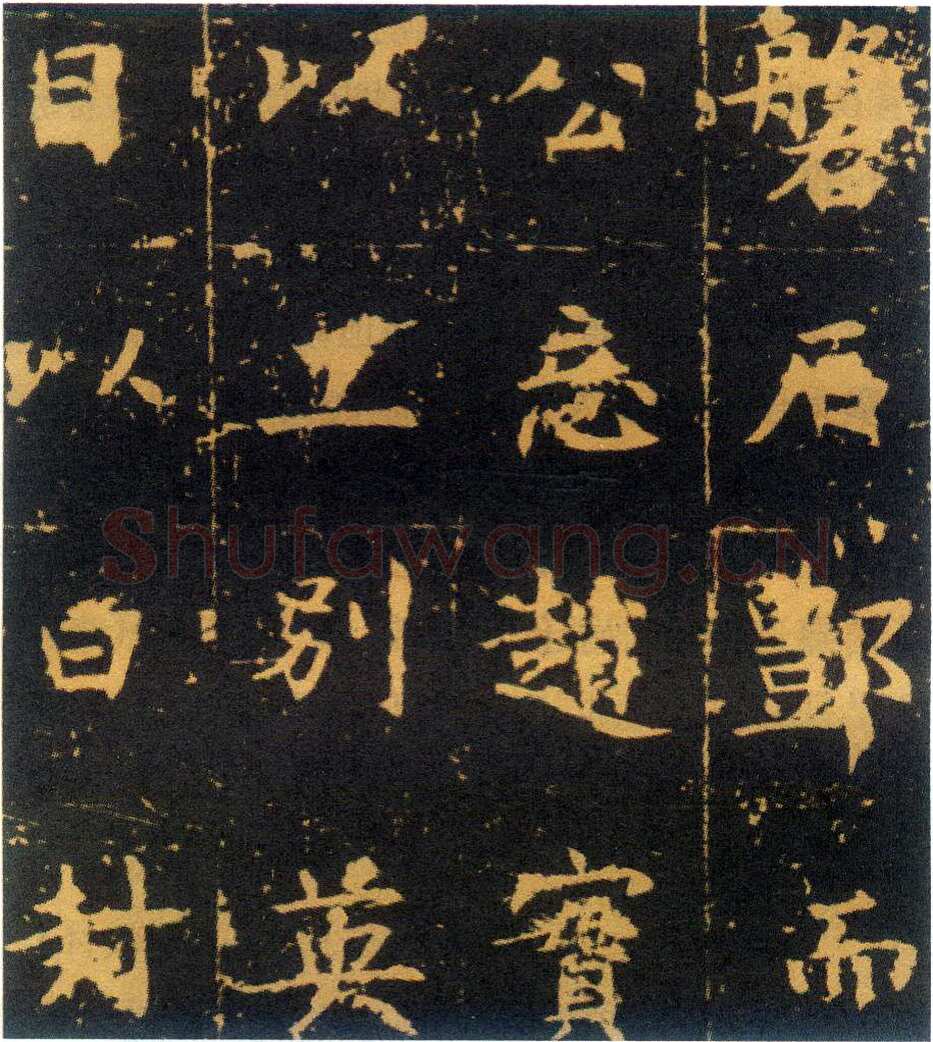 磐石酆而
公忘趙寶
以工別英
日以白封
Shufawang.CN